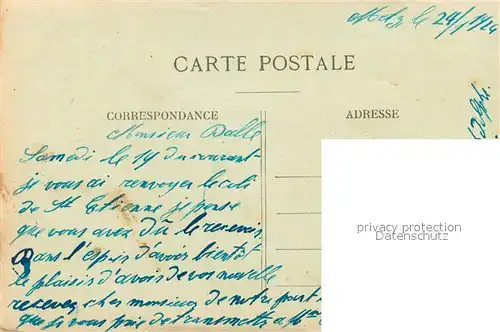 Metz le 24/1 1920
CARTE POSTALE
CORRESPONDANCE
ADRESSE
Monsieur Dalle
Samedi le 19 du courant
je vous ai renvoyer le coli
de St Etienne je pense
que vous avez dû le recevoir
Dans l'espoir d'avoir bientôt
le plaisir d'avoir de vos nouvelle
recevez cher monsieur de notre part
que je vous prie de transmettre a Mme
privacy protection
Datenschutz